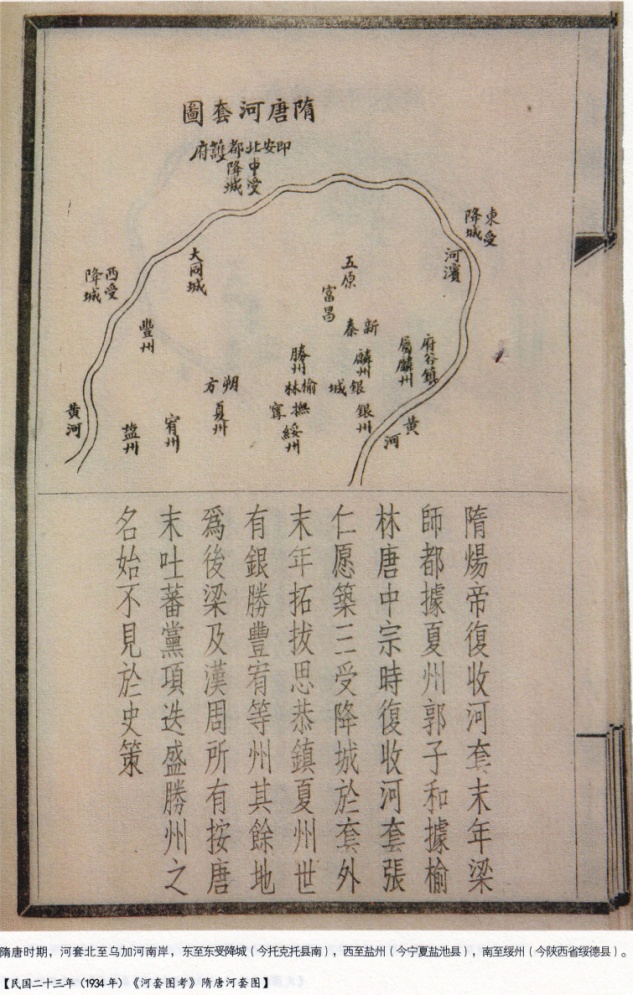 隋唐河套圖
即安北都護府
中受降城
東受降城
河濱
五原
富昌
大同城
西受降城
豐州
新秦
府谷鎮
屬麟州
麟州
勝州
榆林
銀城
銀州
撫寧
綏州
朔方
夏州
宥州
鹽州
黃河
黃河
隋煬帝復收河套末年梁
師都據夏州郭子和據榆
林唐中宗時復收河套張
仁愿築三受降城於套外
末年拓拔思恭鎮夏州世
有銀勝豐宥等州其餘地
爲後梁及漢周所有按唐
末吐蕃黨項迭盛勝州之
名始不見於史策
隋唐时期，河套北至乌加河南岸，东至东受降城（今托克托县南），西至盐州（今宁夏盐池县），南至绥州（今陕西省绥德县）。
【民国二十三年（1934年）《河套图考》隋唐河套图】